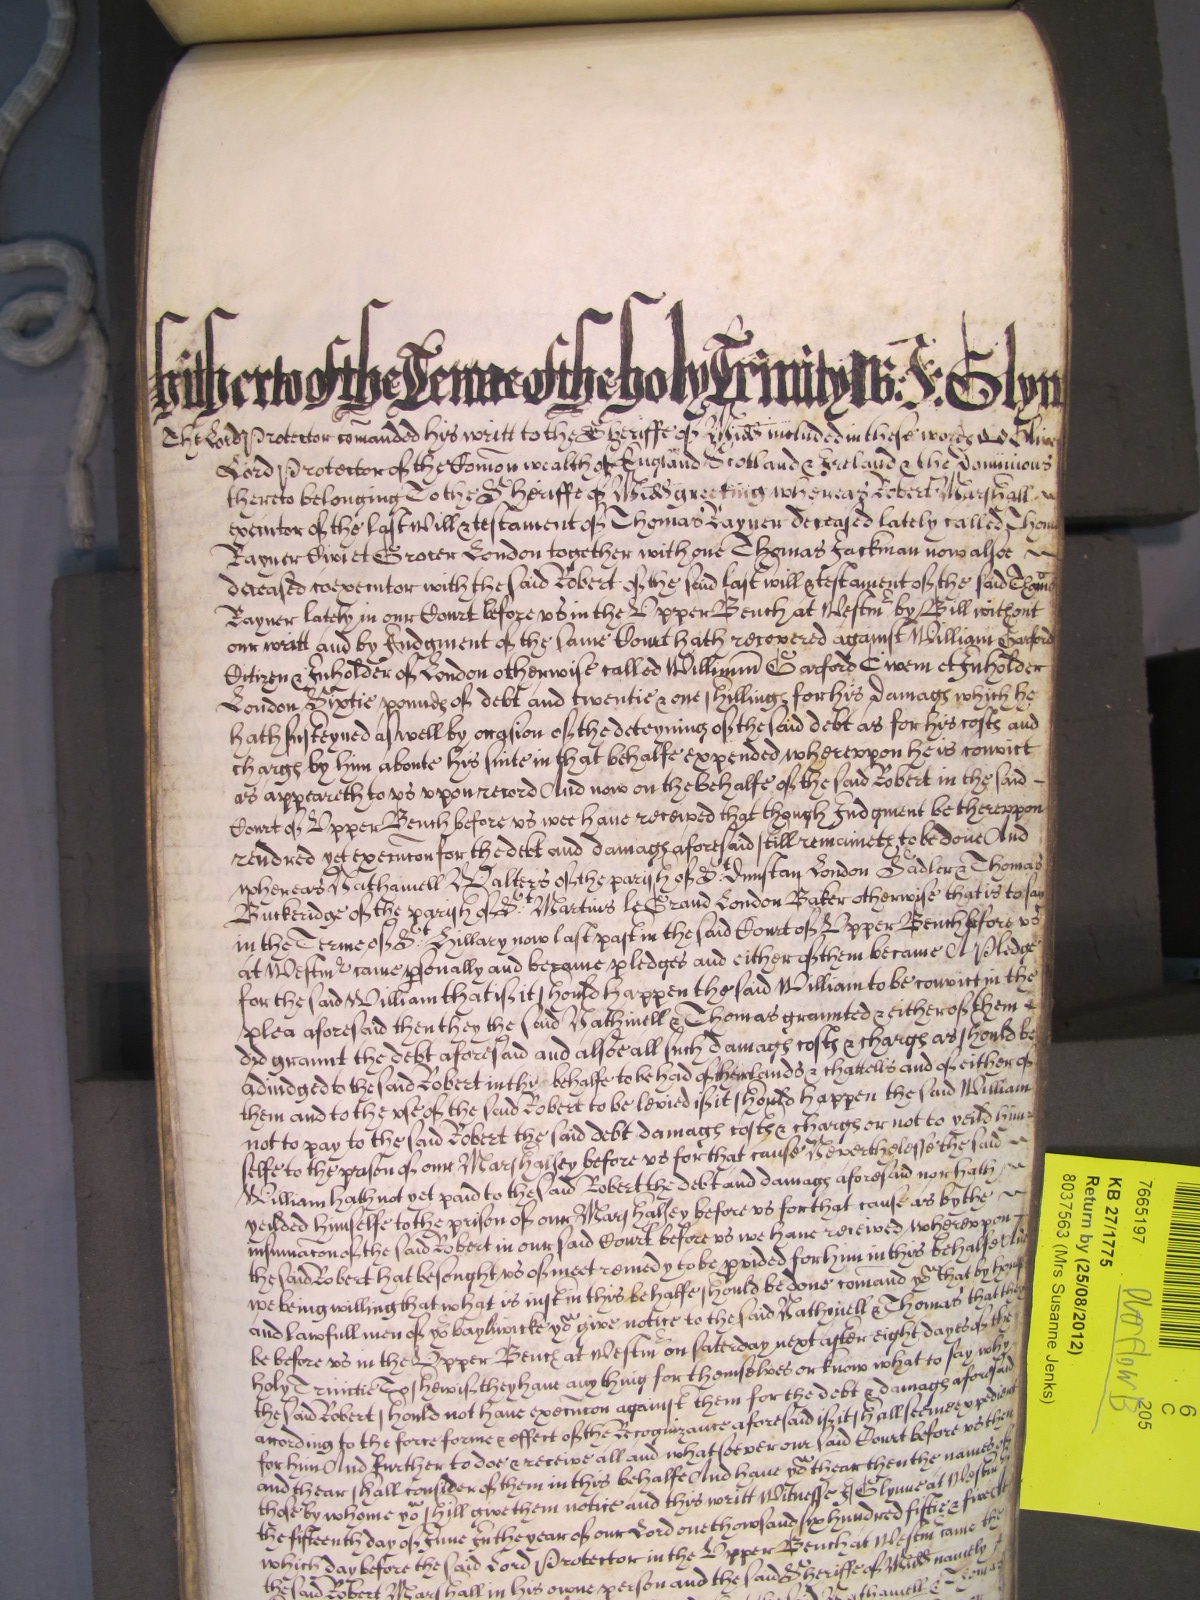 hitherto of the Terme of the holy Trinity W: J: Glyn
The Lord Protector comanded his writt to the Sheriffe of Midd included in these words ss Olive
Lord Protector of the Comon wealth of England Scotland & Ireland & the Dominions
thereto belonging To the Sheriffe of Midd greeting whereas Robert Marshall
executor of the last Will & testament of Thomas Rayner deceased lately called Thom
Rayner Civi et Grocer London together with one Thomas Jackman now alsoe
deceased coexecutor with the said Robert of the said last will & testament of the said Thoms
Rayner lately in our Court before vs in the Vpper Bench at Westmr by Bill without
our writt and by Judgment of the same Court hath recovered against William Garford
Citizen & Inholder of London otherwise called Willimm Garford Civem et Inholder
London Sixtie pounds of debt and twentie & one shillings for his Damags which he
hath susteyned aswell by occasion of the deteyning of the said debt as for his costs and
chargs by him aboute his suite in that behalfe expended wherevpon he is convict
as appeareth to vs vpon record And now on the behalfe of the said Robert in the said
Court of Vpper Bench before vs wee haue received that though Judgment be therevpon
rendred yet execucon for the debt and damags aforesaid still remaineth to be done And
whereas Nathaniell Walters of the parish of St Dunstan London Sadler & Thomas
Buckeridge of the parish of St Martins le Grand London Baker otherwise that is to say
in the Terme of St Hillary now last past in the said Court of Vpper Bench before vs
at Westmr came psonally and became pledges and either of them became A Pledge
for the said William that if it should happen the said William to be convict in the
plea aforesaid then they the said Nathinell & Thomas graunted & either of them
did graunt the debt aforesaid and alsoe all such damags costs & chargs as should be
adiudged to the said Robert in this behalfe to be had of their lands & chattells and of either of
them and to the vse of the said Robert to be levied if it should happen the said William
not to pay to the said Robert the said debt damags costs & chargs or not to yeild him
selfe to the prison of our Marshalsey before vs for that cause Neverthelesse the said
William hath not yet paid to the said Robert the debt and damags aforesaid nor hath
yeilded himselfe to the prison of our Marshalsey before vs for that cause as by the
insinuacon of the said Robert in our said Court before vs we haue receiued wherevpon
the said Robert hat besought vs of meet remedy to be pvided for him in this behalfe And
we being willing that what is iust in this behalfe should be done comand yow that by honest
and lawfull men of yor bayliwicke yow give notice to the said Nathniell & Thomas that they
be before vs in the Vpper Bench at Westmr on Saturday next after eight dayes of the
holy Trinitie To shew if they haue any thing for themselves or know what to say why
the said Robert should not haue execucon against them for the debt & damags aforesaid
according to the force forme & effect of the Recognizance aforesaid if it shall seeme expedient
for him And further to doe & receive all and whatsoever our said Court before vs then
and thear shall consider of them in this behalfe And haue yow thear then the names of
those by whome yow shill give them notice and this writt Witnesse J Glynne at Westmr
the fifteenth day of June In the year of our Lord one thowsand six hundred fiftie & five At
which day before the said Lord Protector in the Vpper Bench at Westm came the
the said Robert Marshall in his owne person and the said Sheriffe of Midd namely
7665197
KB 27/1775
Return by (25/08/2012)
8037563 (Mrs Susanne Jenks)
205
6
C